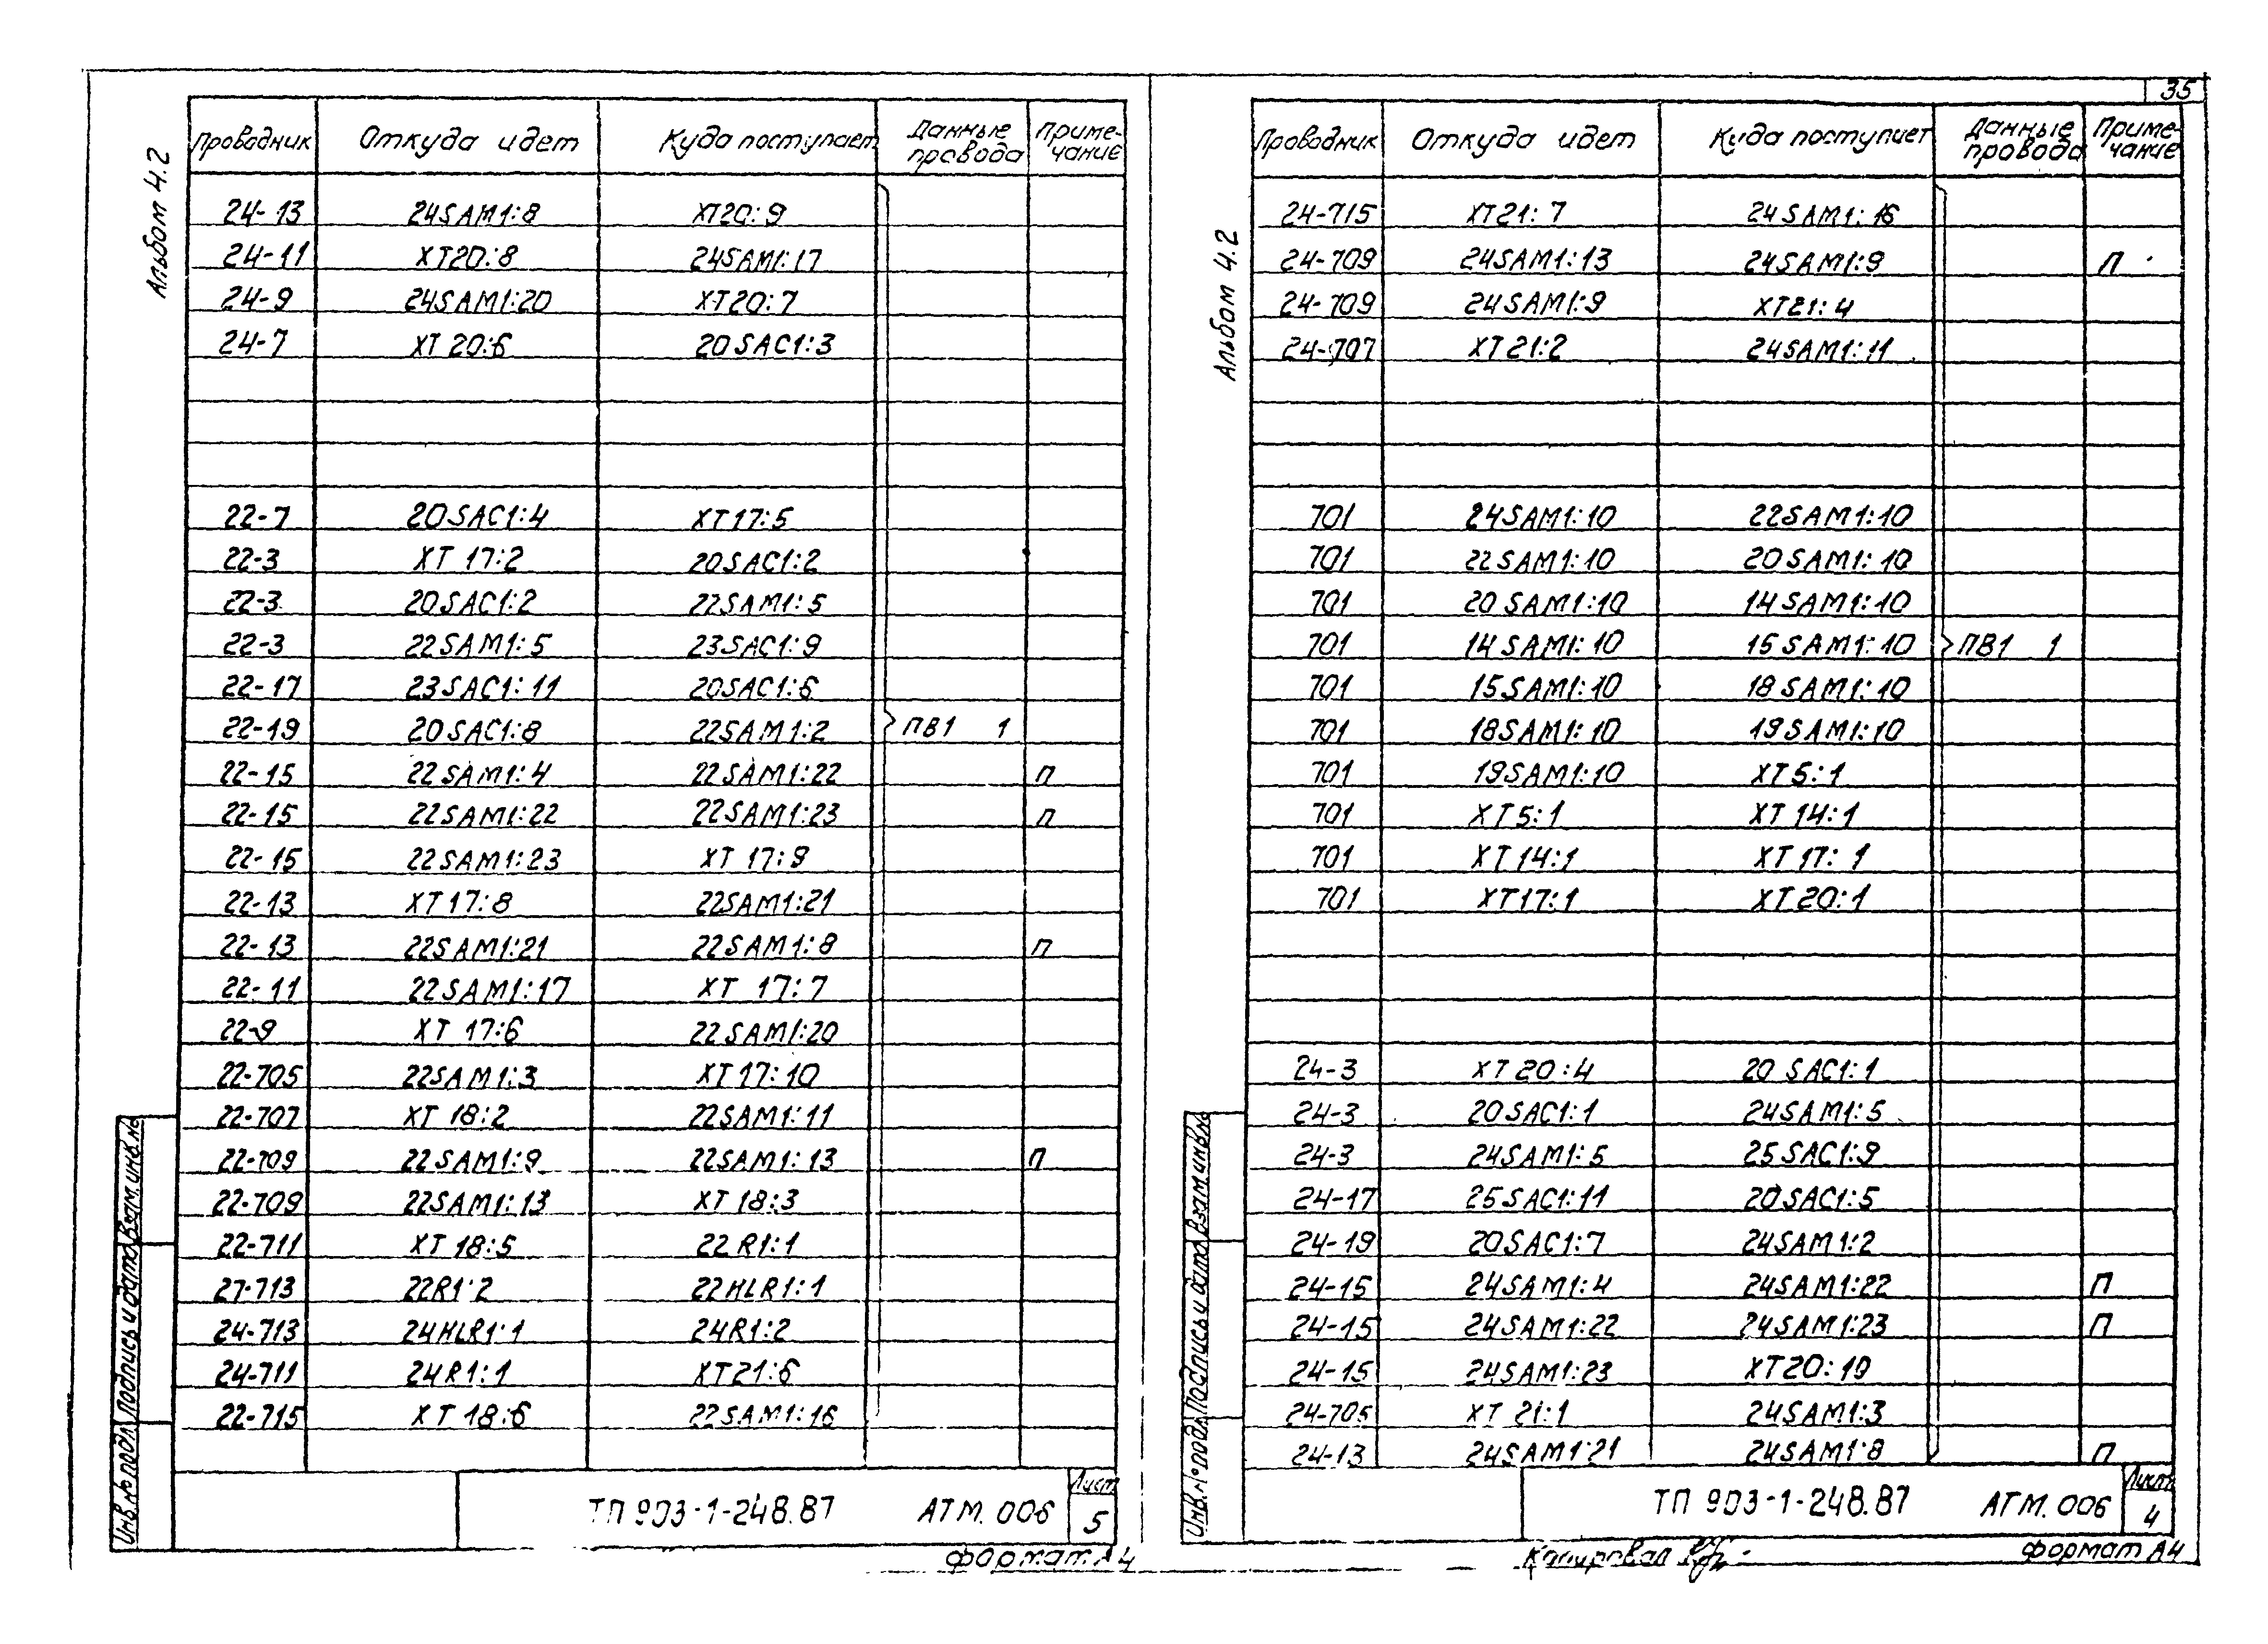 35
Альбом 4.2
Проводник Откуда идет Куда поступает Данные провода Примечание
24-13 24SAM1:8 XT20:9
24-11 XT20:8 24SAM1:17
24-9 24SAM1:20 XT20:7
24-7 XT20:6 20SAC1:3
22-7 20SAC1:4 XT17:5
22-3 XT 17:2 20SAC1:2
22-3 20SAC1:2 22SAM1:5
22-3 22SAM1:5 23SAC1:9
22-17 23SAC1:11 20SAC1:6
22-19 20SAC1:8 22SAM1:2 ПВ1 1
22-15 22SAM1:4 22SAM1:22 П
22-15 22SAM1:22 22SAM1:23 П
22-15 22SAM1:23 XT 17:9
22-13 XT17:8 22SAM1:21
22-13 22SAM1:21 22SAM1:8 П
22-11 22SAM1:17 XT 17:7
22-9 XT 17:6 22SAM1:20
22-705 22SAM1:3 XT17:10
22-707 XT 18:2 22SAM1:11
22-709 22SAM1:9 22SAM1:13 П
22-709 22SAM1:13 XT18:3
22-711 XT 18:5 22R1:1
27-713 22R1:2 22HLR1:1
24-713 24HLR1:1 24R1:2
24-711 24R1:1 XT21:6
22-715 XT 18:6 22SAM1:16
Инв.№ подл. Подпись и дата Взам.инв.№
ТП 903-1-248.87 АТМ.006 Лист 5
формат А4
Альбом 4.2
Проводник Откуда идет Куда поступает Данные провода Примечание
24-715 XT21:7 24SAM1:16
24-709 24SAM1:13 24SAM1:9 П
24-709 24SAM1:9 XT21:4
24-707 XT21:2 24SAM1:11
701 24SAM1:10 22SAM1:10
701 22SAM1:10 20SAM1:10
701 20SAM1:10 14SAM1:10
701 14SAM1:10 15SAM1:10 ПВ1 1
701 15SAM1:10 18SAM1:10
701 18SAM1:10 19SAM1:10
701 19SAM1:10 XT5:1
701 XT5:1 XT14:1
701 XT14:1 XT17:1
701 XT17:1 XT20:1
24-3 XT20:4 20SAC1:1
24-3 20SAC1:1 24SAM1:5
24-3 24SAM1:5 25SAC1:9
24-17 25SAC1:11 20SAC1:5
24-19 20SAC1:7 24SAM1:2
24-15 24SAM1:4 24SAM1:22 П
24-15 24SAM1:22 24SAM1:23 П
24-15 24SAM1:23 XT20:10
24-705 XT 21:1 24SAM1:3
24-13 24SAM1:21 24SAM1:8 П
Инв.№ подл. Подпись и дата Взам.инв.№
ТП 903-1-248.87 АТМ.006 Лист 4
Копировал формат А4